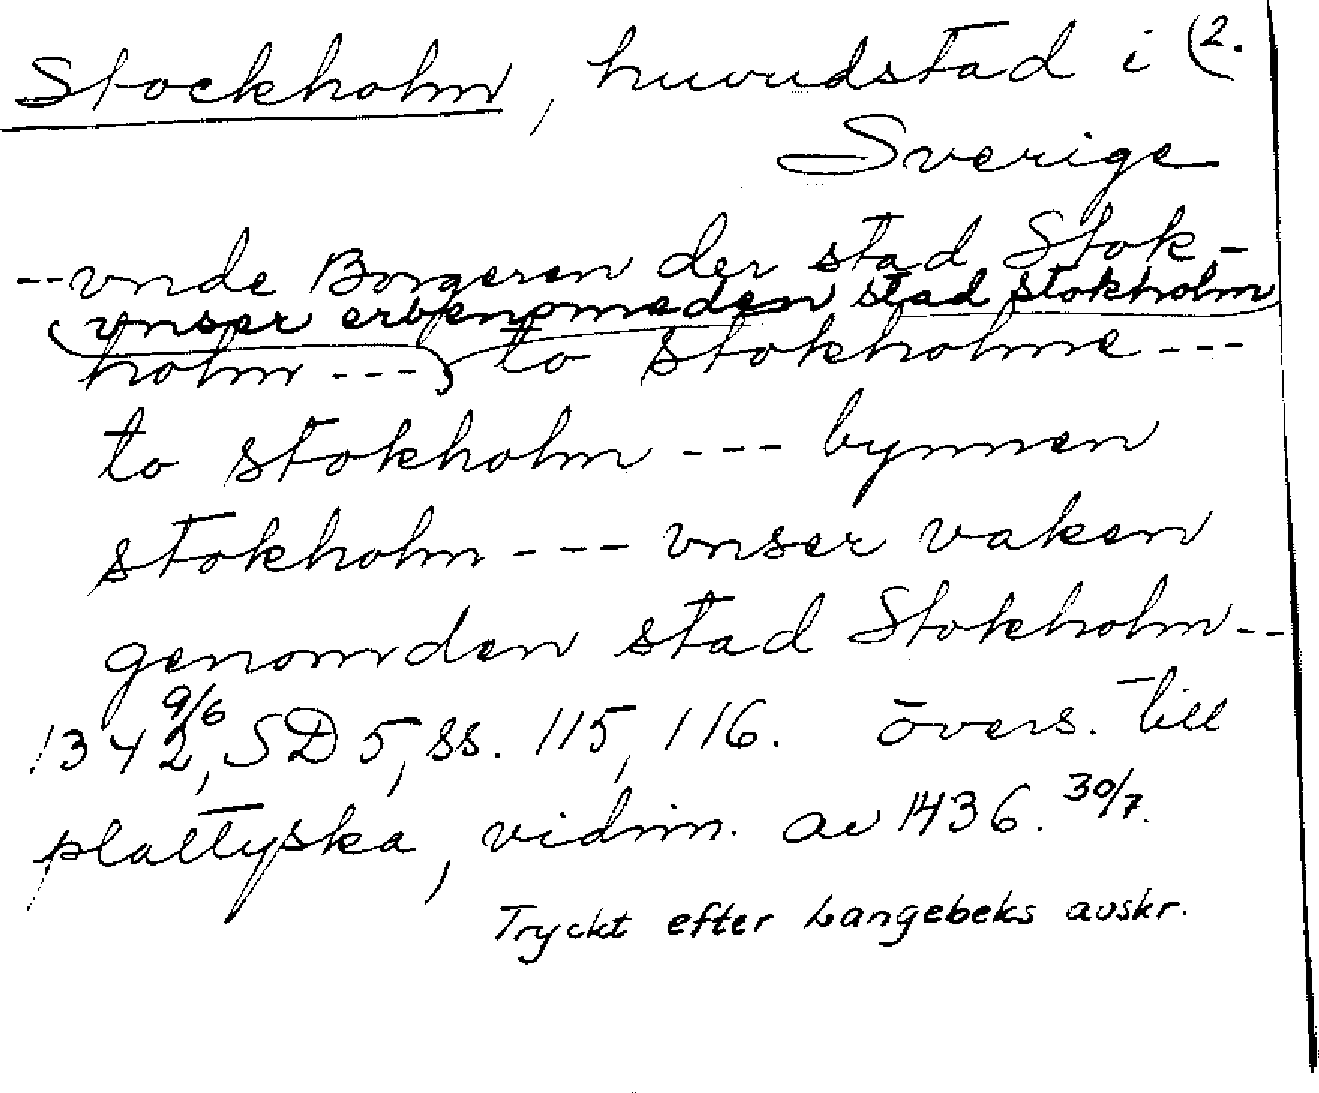 Stockholm, huvudstad i (2.
Sverige
--vnde Borgeren der stad Stok-
vnser erbenomeden stad stokholm
holm --- to stokholme ---
to stokholm --- bynnen
stokholm --- vnser vaken
genomden stad Stokholm --
1342 9/6, SD 5, ss. 115, 116. övers. till
plattyska, vidim. av 1436. 30/7.
Tryckt efter Langebeks avskr.